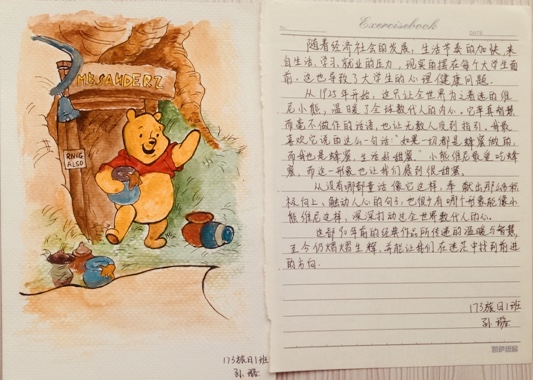 MR.SANDERZ
RNIG
ALSO
173旅日1班
孙璐
Exercisebook
No.
DATE
随着经济社会的发展，生活节奏的加快，来
自生活、学习、就业的压力，现实的摆在每个大学生面
前。这也导致了大学生的心理健康问题。
从1925年开始，这只让全世界为之着迷的维
尼小熊，温暖了全球数代人的内心。它率真智慧
而毫不做作的话语，也让无数人受到指引。我最
喜欢它说的这么一句话"如果一切都是蜂蜜做的，
而我也是蜂蜜，生活好甜蜜。"小熊维尼最爱吃蜂
蜜，而这一形象也让我们感到很甜蜜。
从没有哪部童话像它这样，奉献出那么多积
极向上、触动人心的句子，也很少有哪个形象能像小
熊维尼这样，深深打动这全世界数代人的心。
这部90年前的经典作品所传递的温暖与智慧，
至今仍熠熠生辉，并能让我们在迷茫中找到前进
的方向。
173旅日1班
孙璐